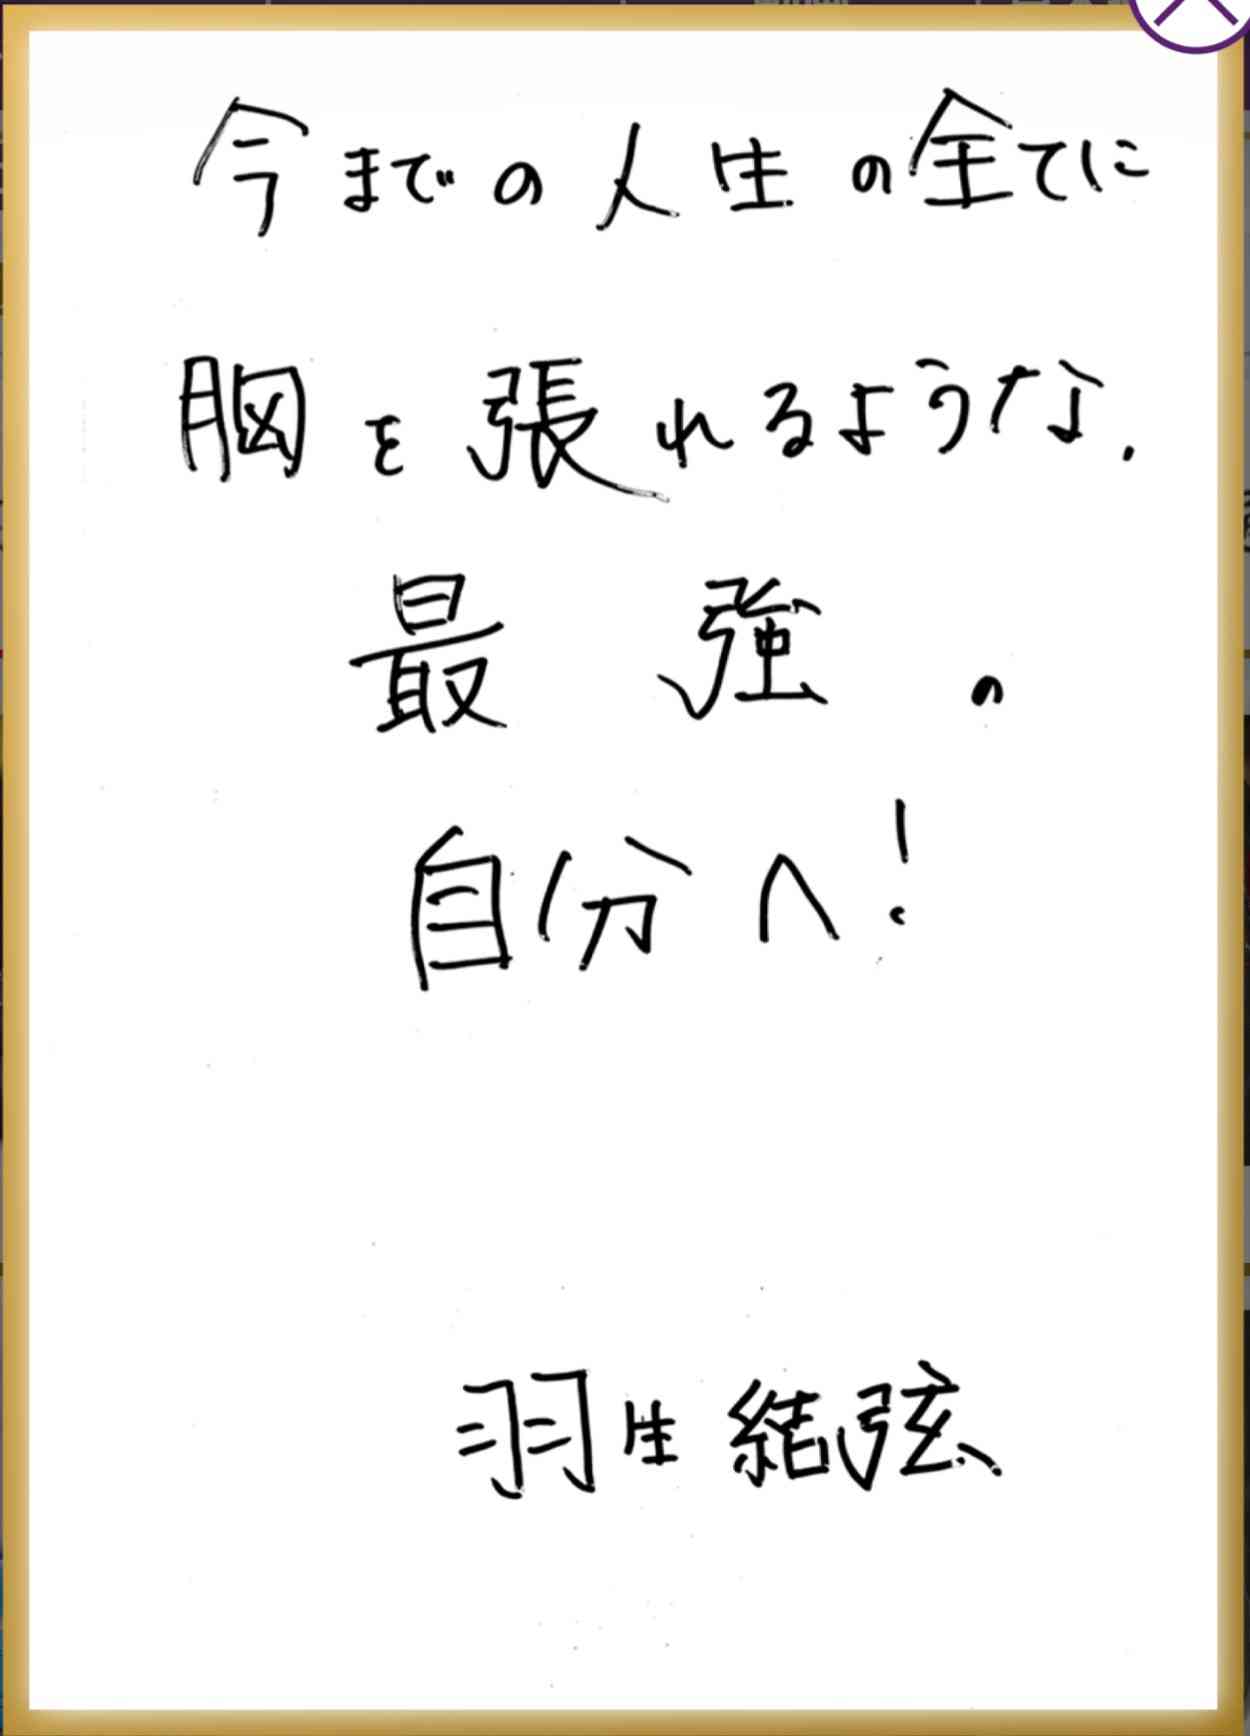 今までの人生の全てに
胸を張れるような.
最強の
自分へ!
羽生結弦